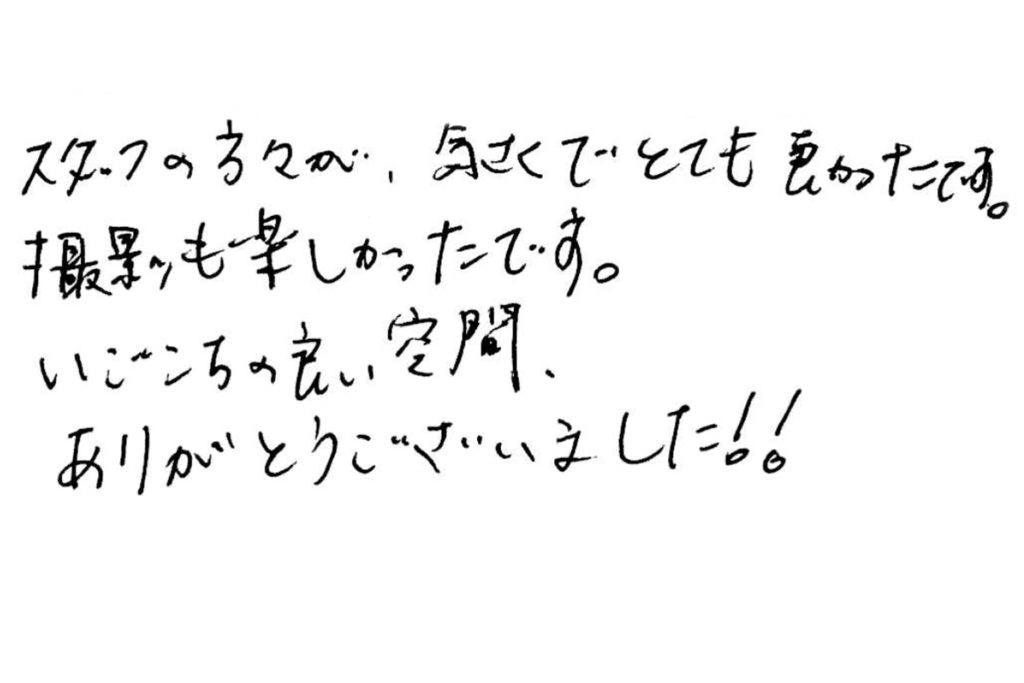 スタッフの方々が、気さくでとても良かったです。
撮影も楽しかったです。
いごこちの良い空間、
ありがとうございました!!